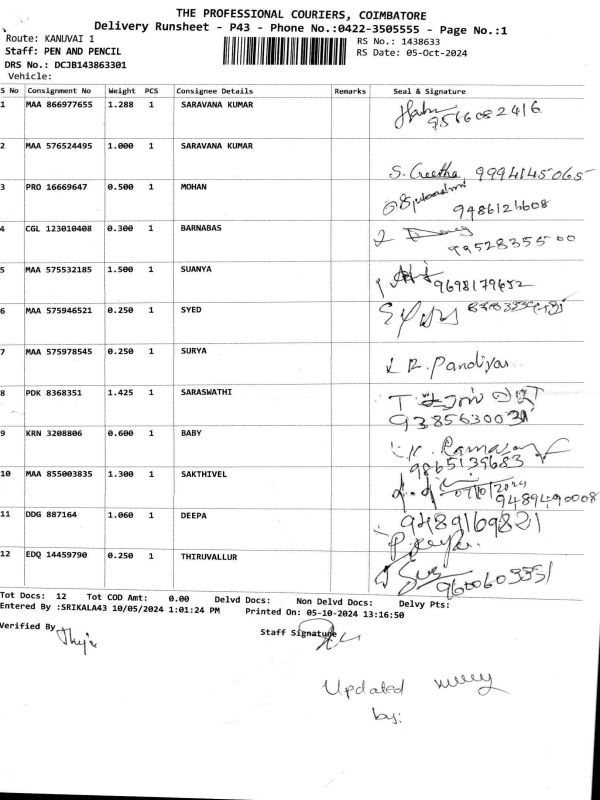 THE PROFESSIONAL COURIERS, COIMBATORE
Delivery Runsheet - P43 - Phone No.:0422-3505555 - Page No.:1
Route: KANUVAI 1
RS No.: 1438633
Staff: PEN AND PENCIL
RS Date: 05-Oct-2024
DRS No.: DCJB143863301
Vehicle:
S No Consignment No Weight PCS Consignee Details Remarks Seal & Signature
1 MAA 866977655 1.288 1 SARAVANA KUMAR
9566082416
2 MAA 576524495 1.000 1 SARAVANA KUMAR
S. Geetha 9994145065
3 PRO 16669647 0.500 1 MOHAN
9486126608
4 CGL 123010408 0.300 1 BARNABAS
9952835500
5 MAA 575532185 1.500 1 SUANYA
9698179652
6 MAA 575946521 0.250 1 SYED
7 MAA 575978545 0.250 1 SURYA
R. Pandiyan
8 PDK 8368351 1.425 1 SARASWATHI
9385630031
9 KRN 3208806 0.600 1 BABY
9865139683
10 MAA 855003835 1.300 1 SAKTHIVEL
07/10/2024
9489490008
11 DDG 887164 1.060 1 DEEPA
9489169821
12 EDQ 14459790 0.250 1 THIRUVALLUR
9600603351
Tot Docs: 12 Tot COD Amt: 0.00 Delvd Docs: Non Delvd Docs: Delvy Pts:
Entered By :SRIKALA43 10/05/2024 1:01:24 PM Printed On: 05-10-2024 13:16:50
Verified By
Staff Signature
Updated
by: